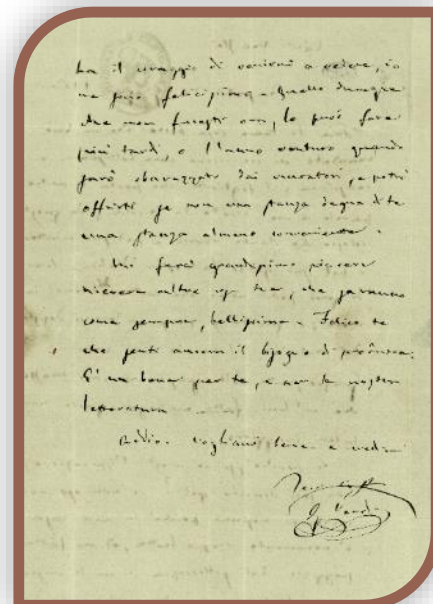 ha il coraggio di venirmi a vedere, io
ne sarò felicissimo. Quello dunque
che non facesti ora, lo puoi fare
più tardi, o l'anno venturo quando
sarò sbarazzato dai muratori, e potrò
offrirti se non una stanza degna di te
una stanza almeno conveniente.
Mi farà grandissimo piacere
ricevere altre op. tue, che saranno
come sempre, bellissime. Felice te
che senti ancora il bisogno di produrre:
È un bene per te, e per la nostra
letteratura
Addio. Vogliami bene e credimi
G. Verdi